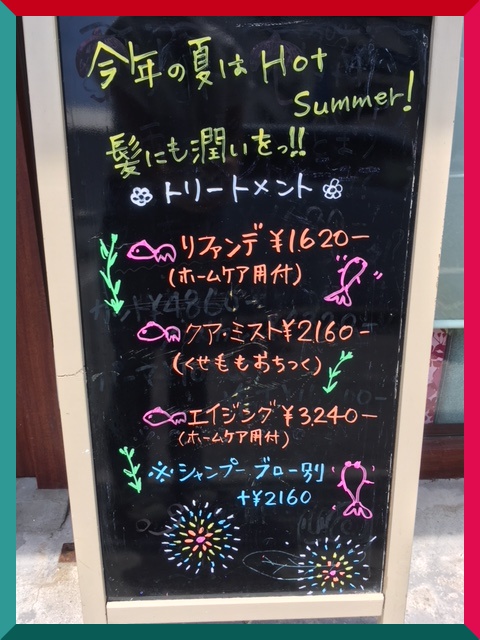 今年の夏は Hot
Summer!
髪にも潤いをっ!!
トリートメント
リファンデ ¥1620-
(ホームケア用付)
クア・ミスト¥2160-
(くせもおちつく)
エイジング ¥3,240-
(ホームケア用付)
※シャンプー ブロー別
+¥2160